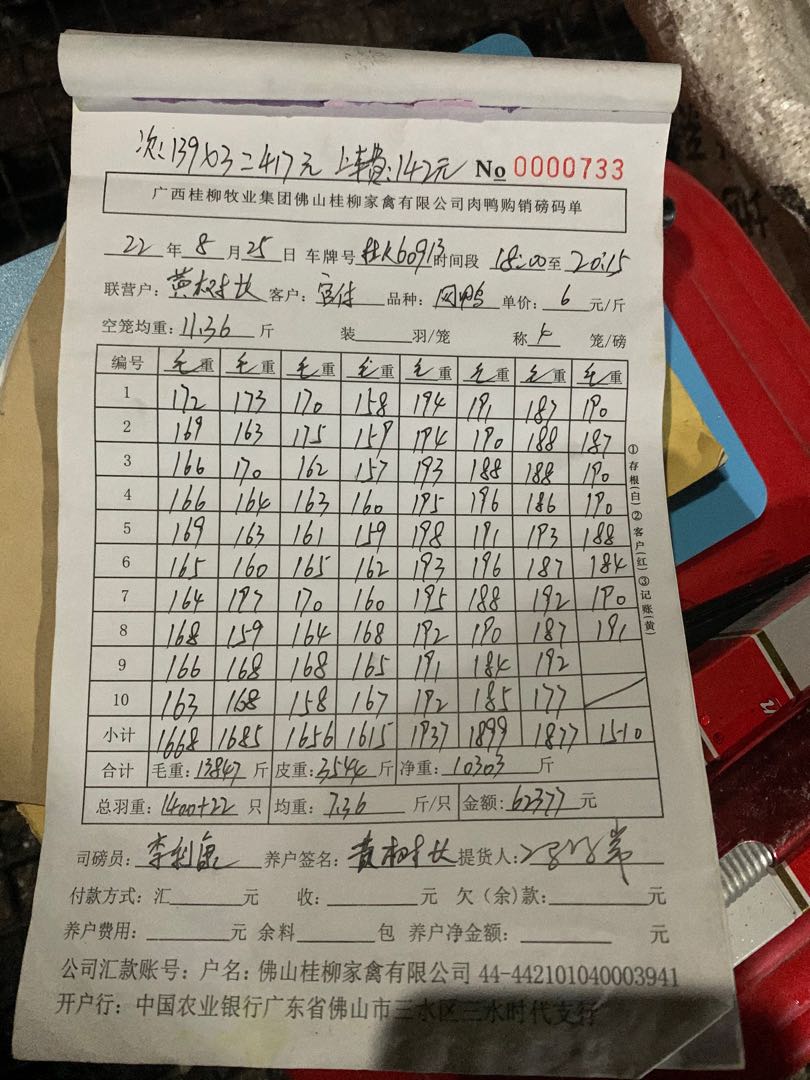 次:139×3=417元 上车费:142元 No 0000733
广西桂柳牧业集团佛山桂柳家禽有限公司肉鸭购销磅码单
22年8月25日 车牌号桂K60913时间段 18:00至20:15
联营户:黄树长 客户: 品种: 单价:6元/斤
空笼均重:11.36斤 装 羽/笼 称 笼/磅
编号 毛重 毛重 毛重 毛重 毛重 毛重 毛重 毛重
1 172 173 170 158 194 191 187 190
2 169 163 175 159 194 190 188 187
3 166 170 162 157 193 188 188 190
4 166 164 163 160 195 196 186 190
5 169 163 161 159 198 191 193 188
6 165 160 165 162 193 196 187 184
7 164 197 170 160 195 188 192 190
8 168 159 164 168 192 190 187 191
9 166 168 168 165 191 184 192
10 163 168 158 167 192 185 177
小计 1668 1685 1656 1615 1937 1899 1877 1510
合计 毛重:13847斤 皮重:3544斤 净重:10303斤
总羽重:1400+22只 均重:7.36斤/只 金额:62377元
司磅员: 养户签名:黄树长 提货人:
付款方式:汇 元 收: 元 欠(余)款: 元
养户费用: 元 余料 包 养户净金额: 元
公司汇款账号:户名:佛山桂柳家禽有限公司 44-442101040003941
开户行:中国农业银行广东省佛山市三水区三水时代支行
①存根(白)②客户(红)③记账(黄)